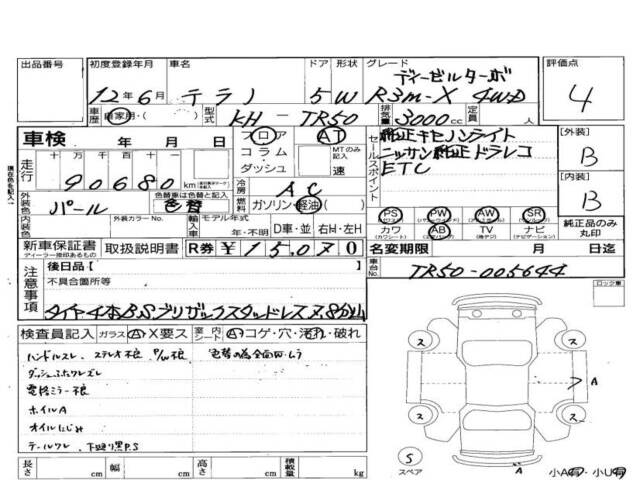 出品番号
初度登録年月 車名 ドア 形状 グレード 評価点
ディーゼルターボ
12年6月 テラノ 5 W R3m-X 4WD 4
車歴 自家用・( ) 型式 KH-TR50 排気量 3000cc 定員 人
車検 年 月 日
フロア AT
コラム MTのみ記入
ダッシュ 速
セールスポイント 純正キセノンライト
ニッサン純正ドラレコ
ETC
【外装】
B
【内装】
B
走行 十万 万 千 百 十
90680km
冷房 AC
外装色 パール 色替車は色替と記入 色替
燃料 ガソリン・軽油・( )
内装色 外装カラーNo. モデル年式 年・不明
輸入車 D車・並 右H・左H
PS PW AW SR
カワ AB TV ナビ
純正品のみ丸印
新車保証書 取扱説明書 R券 ¥15,070
ディーラー捺印あるもの
名変期限 月 日迄
後日品【 】
車台No. TR50-005644
注意事項 不具合箇所等
タイヤ4本B.Sブリザックスタッドレス8分山
ロック車
検査員記入 ガラス A・X要ス 室内シート A・コゲ・穴・汚れ・破れ
ハンドルスレ、ステレオ不良 P/W不良 色替の為全面凹ムラ
ダッシュホワレズレ
電格ミラー不良
ホイルA
オイルにじみ
テールワレ、下廻り黒P.S
ス ス
A
ス ス
S
スペア
A
小A有・小U有
長さ cm 幅 cm 高さ cm 積載量 kg
現在色を記入